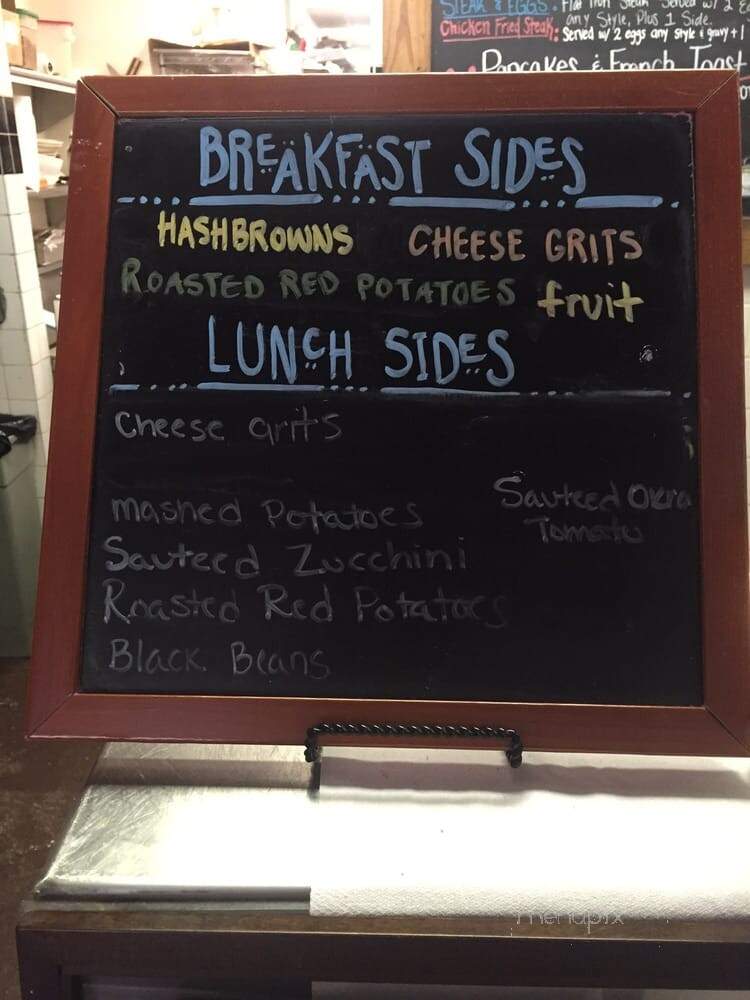 STEAK & EGGS: Flat Iron Steak Served w/ 2 E
any Style, Plus 1 Side.
Chicken Fried Steak: Served w/ 2 eggs any style & gravy + 1
Pancakes & French Toast
BREAKFAST SIDES
HASHBROWNS CHEESE GRITS
ROASTED RED POTATOES fruit
LUNCH SIDES
Cheese Grits
Mashed Potatoes Sauteed Okra
Tomato
Sauteed Zucchini
Roasted Red Potatoes
Black Beans
menupix